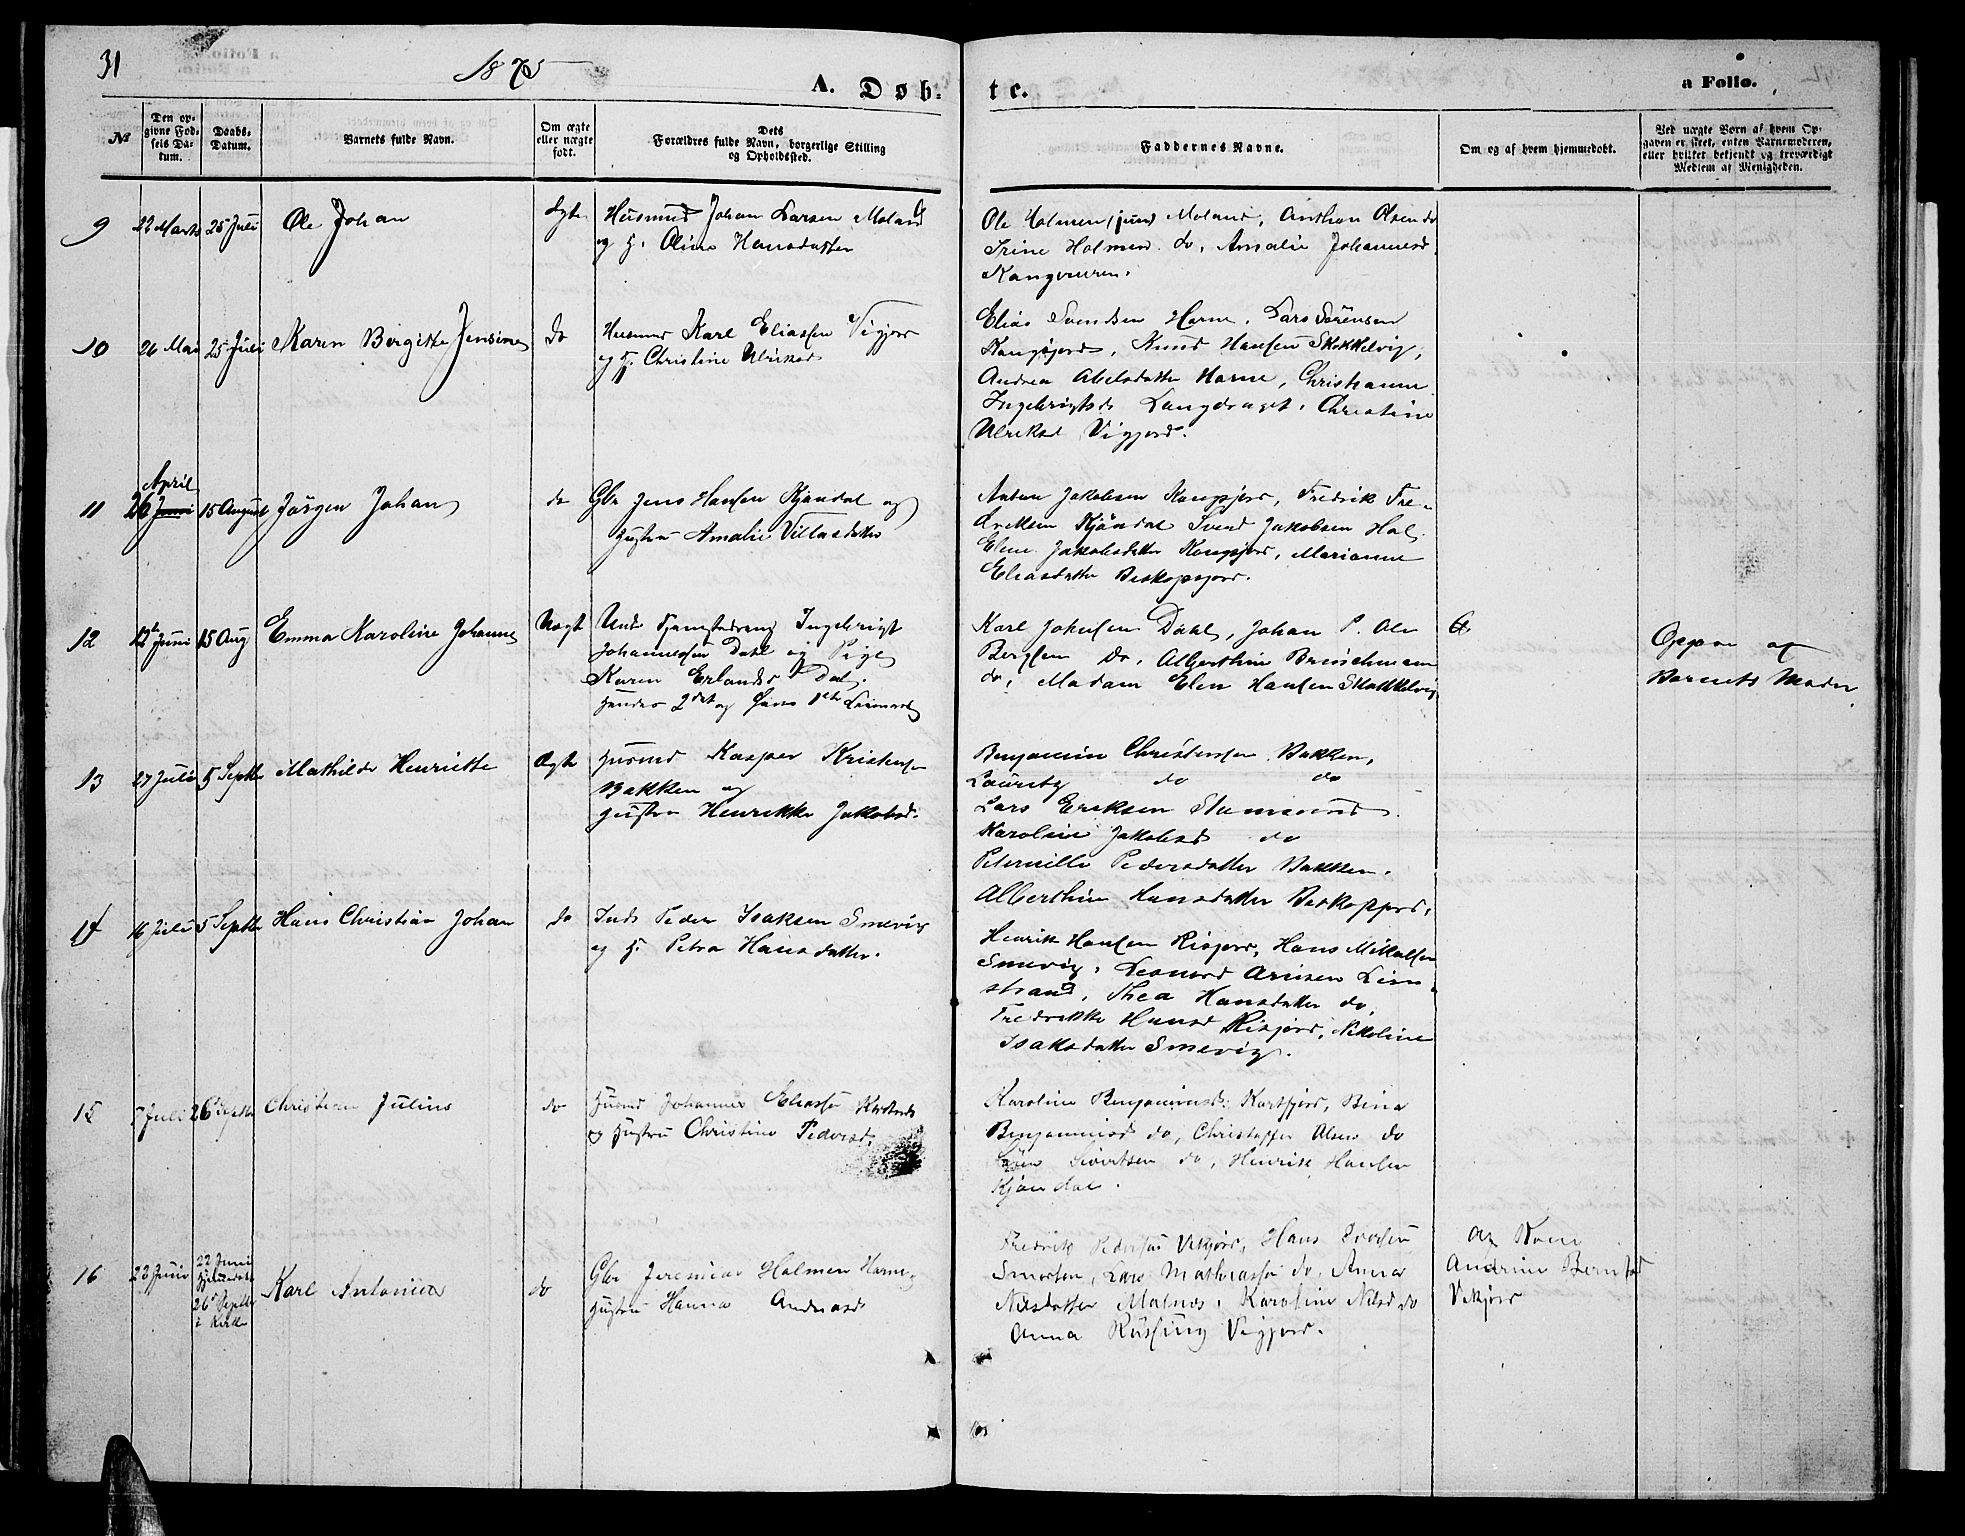 31
1875
A. Døb-
te.
a Folio.
№
Den op-
givne Fød-
sels Da-
tum.
Daabs-
Datum.
Barnets fulde Navn.
Om ægte
eller uægte
født.
Dets
Forældres fulde Navn, borgerlige Stilling
og Opholdssted.
Faddernes Navne.
Om og af hvem hjemmedøbt.
Ved uægte Børn af hvem Op-
gaven er skeet, enten Barnemoderen,
eller hvilket bekjendt og troværdigt
Medlem af Menigheden.
9
22 Marts
25 Juli
Ole Johan
Ægte
Husmd Johan Larsen Moland
og H. Oline Hansdatter
Ole Holmen, Moland, Anthon Olsen do
Trine Holmen do, Amalie Johannesd
10
26 Mai
25 Juli
Karen Bergitte Jensine
do
Husmd Karl Eliassen Vigjord
og H. Christine Ulriksd
Elias Svendsen Horne, Lars Sørensen
Kongsjord, Knud Hansen Skokkelvig,
Andrea Abelsdatter Horne, Christianne
Ingebrigtsd Langdraget, Christine
Ulriksd Vigjord.
11
April
26 Juni
15 August
Jørgen Johan
do
Gbr Jens Hansen Kjøndal og
Hustru Amalie Villasdatter
Anton Jakobsen Kongsjord, Fredrik Fre-
driksen Kjøndal Svend Jakobsen Hol
Elen Jakobsdatter Kongsjord, Marianne
Eliasdatter Beskopsjord.
12
12 Juni
15 Aug
Emma Karoline Johanne
Uægt
Unde Tjenestedreng Ingebrigt
Johannessen Dahl og Pige
Karen Erlandsd Dal.
Hendes 2det og hans 1ste Leiermaal
Karl Johnsen Dahl, Johan P. Ole
Bergsen do, Alberthine Brinchmann
do, Madam Elen Hansen Skokkelvig
Opgave af
Barnets Moder
13
27 Juli
5 Septbr
Mathilde Henriette
Ægte
Husmd Kasper Kristensen
Bakken og
Hustru Henrikke Jakobsd.
Benjamin Christensen Bakken,
Lauritz do do
Lars Eriksen
Karoline Jakobsd do
Peternille Pedersdatter Bakken.
Alberthine Hansdatter Beskopsjord.
14
16 Juli
5 Septbr
Hans Christian Johan
do
Inds Peder Isaksen Smevig
og H. Petra Hansdatter.
Henrik Hansen Risjord, Hans Mikalsen
Smevig, Leonard Arnsen Lien-
strand, Thea Hansdatter do,
Fredrikke Hansd Risjord, Nikoline
Isaksdatter Smevig.
15
7 Juli
26 Septbr
Christian Julius
do
Husmd Johannes Eliassen
og Hustru Christine Pedersd.
Karoline Benjaminsd: Kortfjord, Bina
Benjaminsd do, Christoffer Olsen do
Sivertsen do, Henrik Hansen
Kjøndal.
16
22 Juni
22 Juni
hjemmedøbt
26 Septbr
i Kirke
Karl Antonius
do
Gbr Jeremias Holmen Horne
Hustru Hanna Andreasd
Fredrik Pedersen Vikjord, Hans
Smorten, Lars Mathiassen do, Anna
Nilsdatter Malnes, Karoline Nilsd do
Anna Vigjord.
Af Kone
Andrine Berntsd
Vikjord